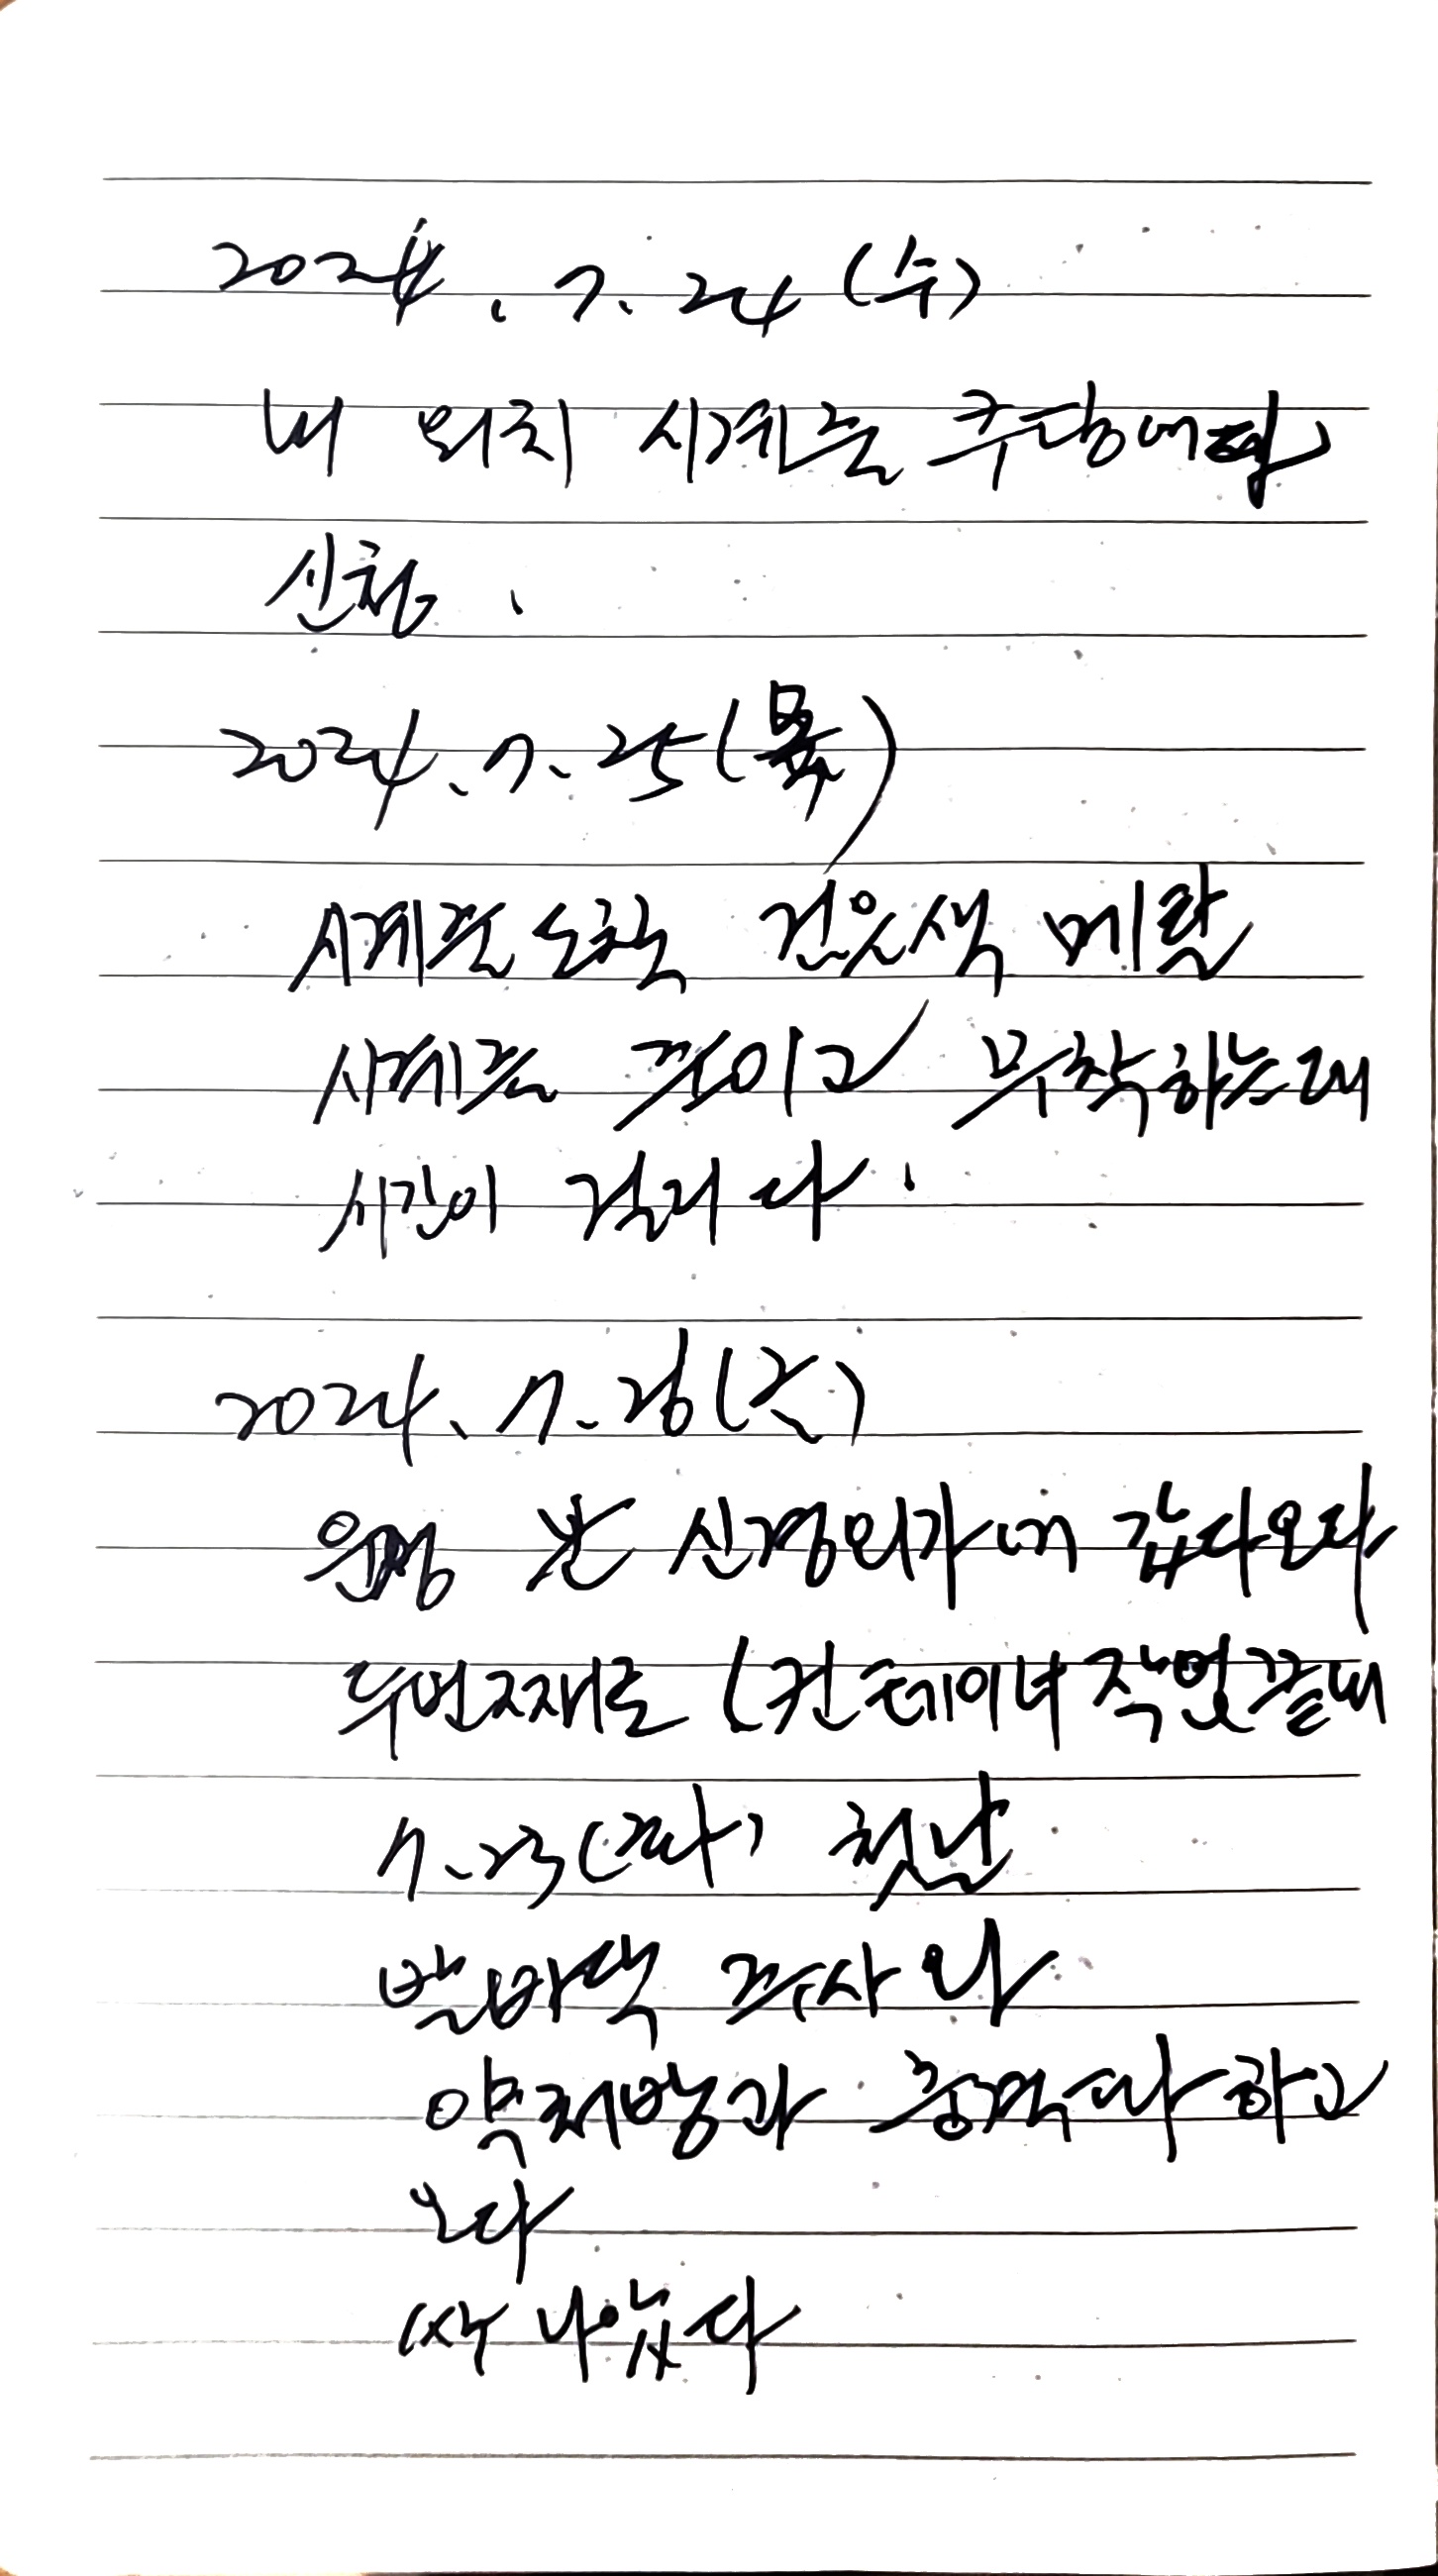 2024. 7. 24 (수)
내 워치 시계줄 쿠팡에
신청.
2024. 7. 25 (목)
시계줄 도착 검은색 메탈
시계줄 줄이고 부착하는데
시간이 걸리다.
2024. 7. 26 (금)
신경외가에 갔다오다
두번째로 (컨테이너 작업 끝내
7. 23 (화) 첫날
주사와
약 처방과 하고
오다
싹 나았다